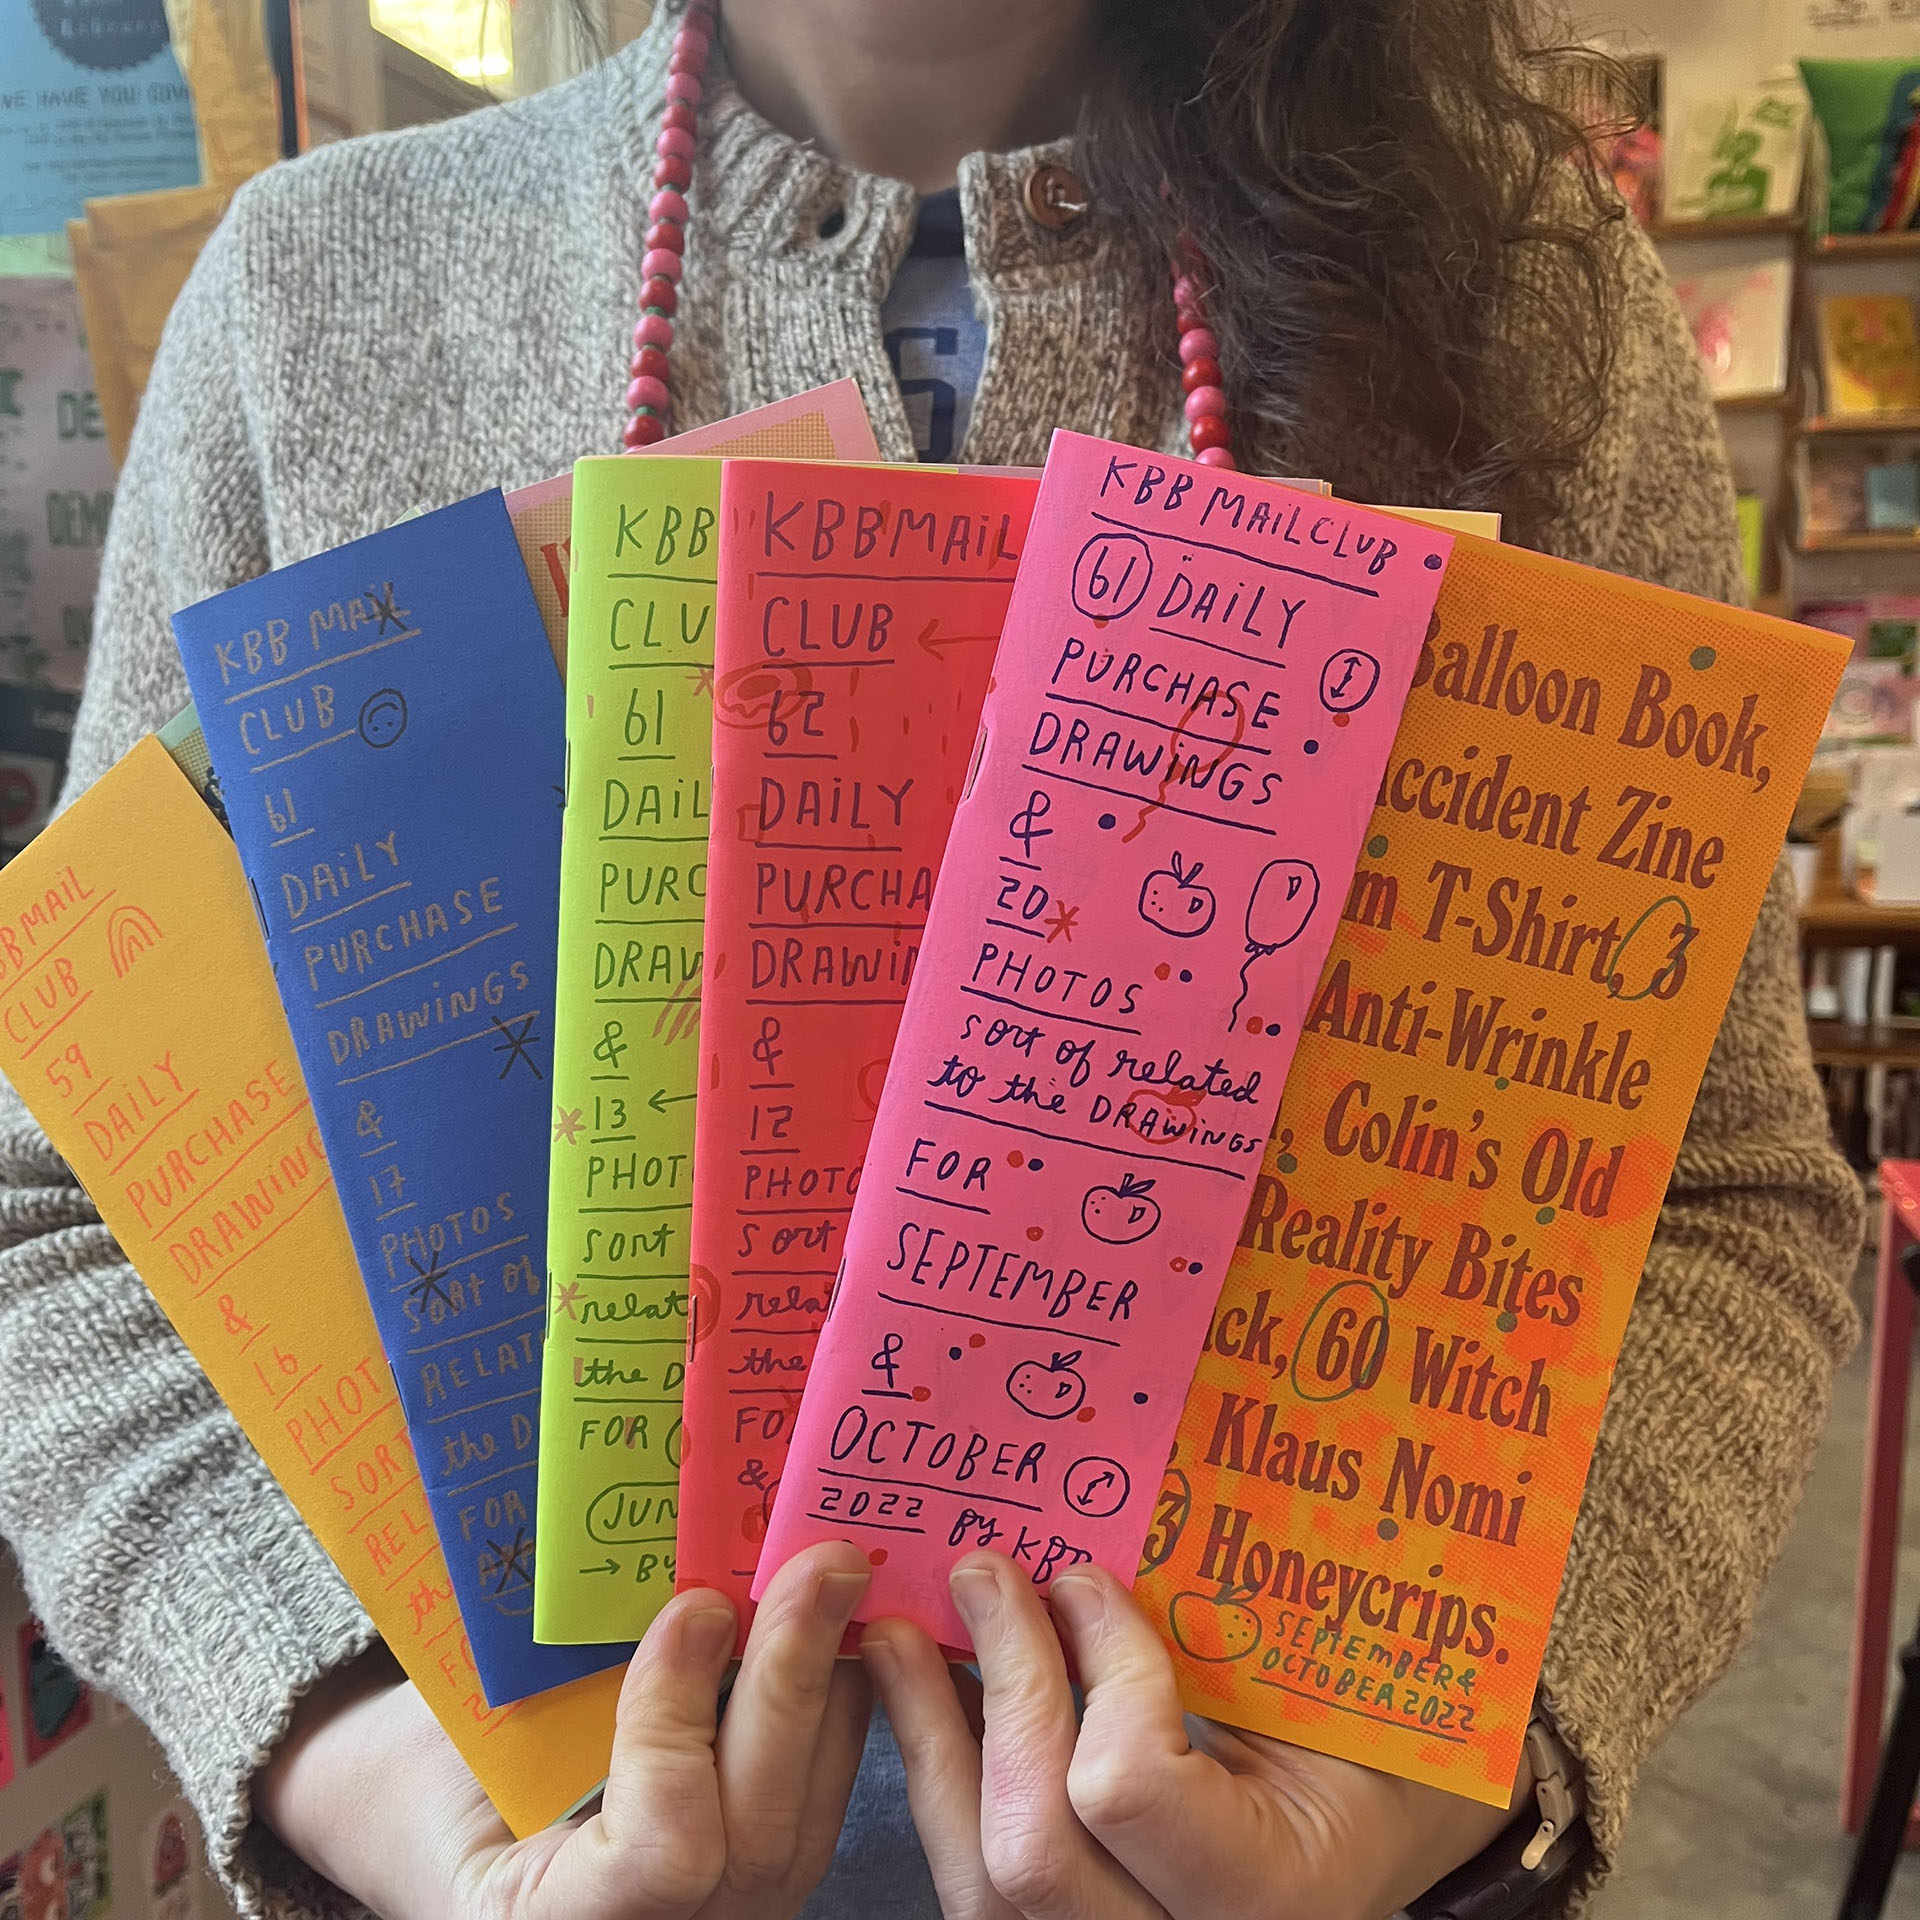 WE HAVE YOU
BBMAIL
CLUB
59
DAILY
PURCHASE
DRAWING
&
16
PHOT
SORT
REL
the
KBB MAIL
CLUB
61
DAILY
PURCHASE
DRAWINGS
&
17
PHOTOS
SORT OF
RELAT
the D
FOR
KBB
CLU
61
DAIL
PURC
DRAW
&
13
PHOT
SORT
relat
the D
FOR
JUN
→ BY
KBBMAIL
CLUB
62
DAILY
PURCHA
DRAWIN
&
12
PHOTO
SORT
rela
the
FO
&
KBB MAILCLUB
61 DAILY
PURCHASE
DRAWINGS
&
20
PHOTOS
sort of related
to the DRAWINGS
FOR
SEPTEMBER
&
OCTOBER
2022 BY KBB
Balloon Book,
ccident Zine
m T-Shirt, 3
Anti-Wrinkle
, Colin's Old
Reality Bites
ck, 60 Witch
, Klaus Nomi
3 Honeycrips.
SEPTEMBER &
OCTOBER 2022